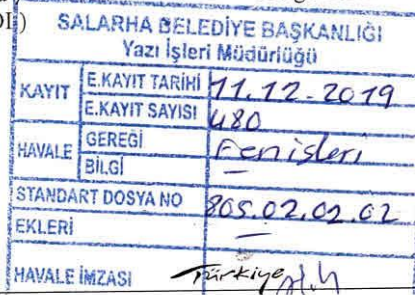 SALARHA BELEDİYE BAŞKANLIĞI
Yazı İşleri Müdürlüğü
KAYIT E.KAYIT TARİHİ 11.12.2019
E.KAYIT SAYISI 480
HAVALE GEREĞİ Fen işleri
BİLGİ —
STANDART DOSYA NO 805.02.02.02
EKLERİ —
HAVALE İMZASI Türkiye